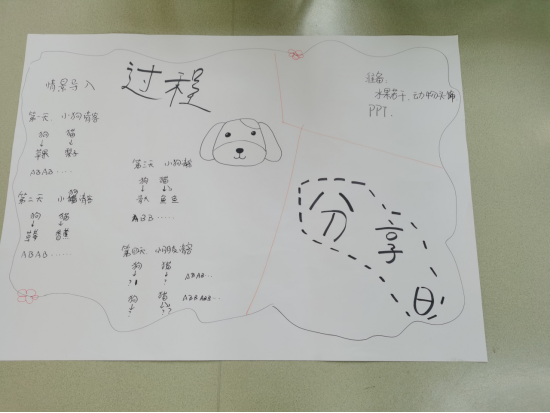 过程
情景导入
第一天 小狗请客
狗 猫
苹果 梨子
ABAB……
第二天 小猫请客
狗 猫
草莓 香蕉
ABAB……
第三天 小狗请客
狗 猫
骨头 鱼鱼
ABB……
第四天 小朋友请客
狗 猫
? ? ABAB…
狗 猫
? ?? ABBABB…
准备
水果若干、动物头饰
PPT
分享日